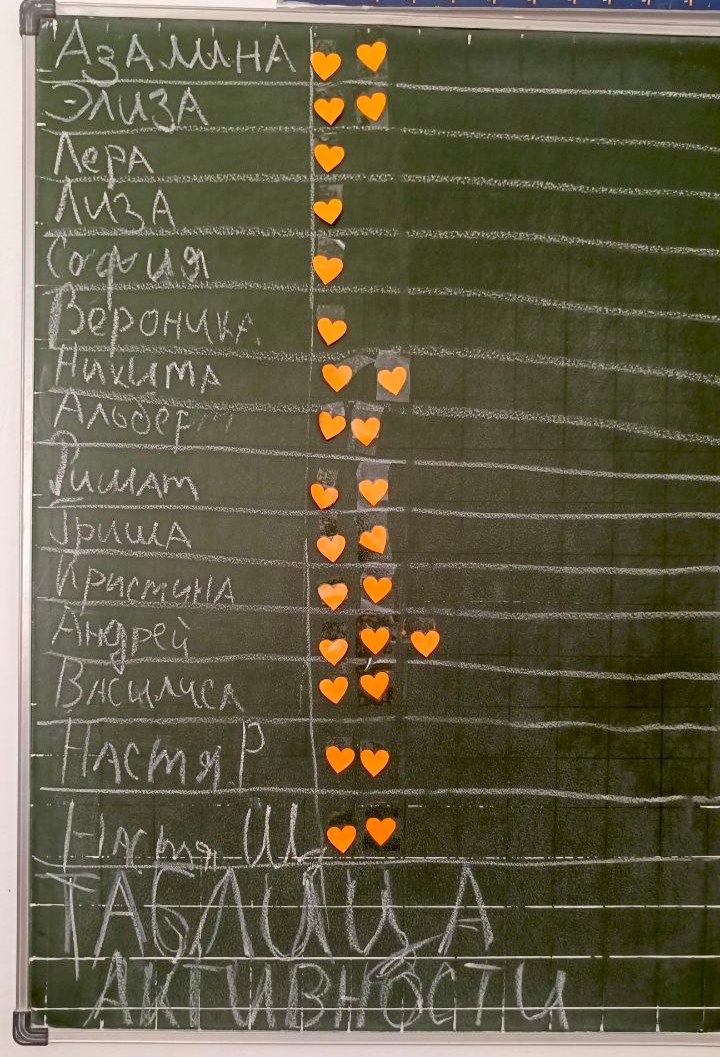 Азамина
Элиза
Лера
Лиза
София
Вероника
Никита
Альберт
Римат
Гриша
Кристина
Андрей
Василиса
Настя Р
Настя Ш
ТАБЛИЦА
АКТИВНОСТИ